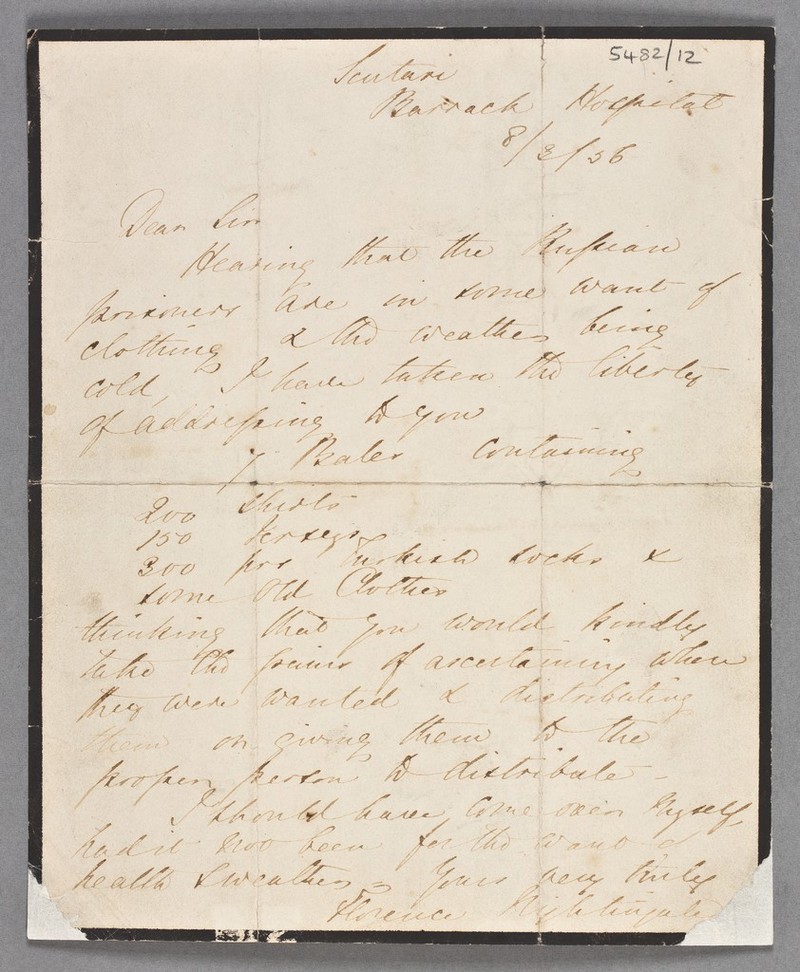 5482/12
Scutari
Barrack Hospital
8/3/56
Dear Sir
Hearing that the Russian
prisoners are in some want of
clothing & the weather being
cold, I have taken the liberty
of addressing to you
7 Bales containing
200 Shirts
150 Jerseys
300 prs Turkish socks &
some Old Clothes
thinking that you would kindly
take the pains of ascertaining where
they were wanted & distributing
them or giving them to the
proper person to distribute -
I should have come over myself,
had it not been for the want of
health & weather = Yours very truly
Florence Nightingale